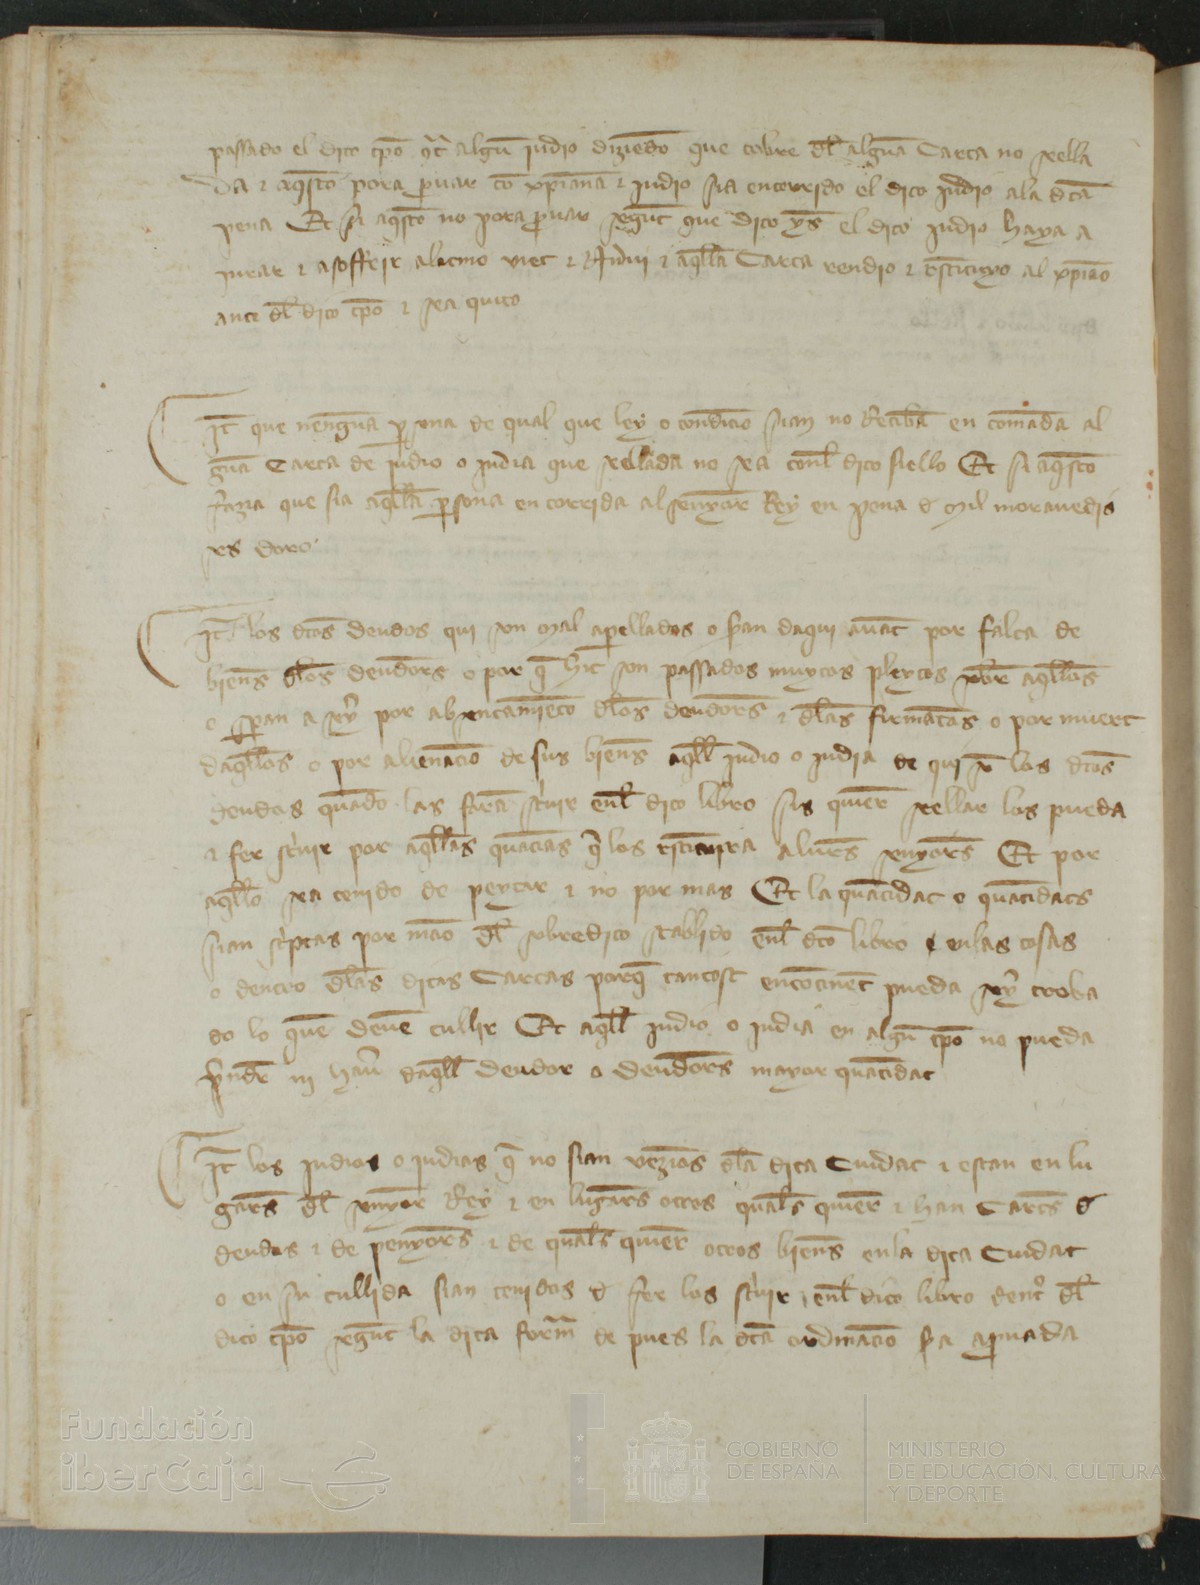 passado el dito tp̄o q̄t algū judio diziēdo que cobre dl̄ algūa Carta no sella
da & aq̄sto pora p̱uar cō xp̄iana & judio sia encorrido el dito judio ala dc̄a
pena Et si aq̄sto no pora p̱uar segūt que dito ȳs el dito judio haya a
jurar & asoffrir & aq̄lla Carta rendio & restituyo al xp̄iāo
ante dl̄ dito tp̄o & sea quito
It̄ que nenguna p̱sona de qual que ley o condicio sian no Reciba en comāda al
gūa Carta de judio o judia que sellada no sea conl̄ dito siello Et si aq̄sto
fazia que sia aq̄lla p̱sona en corrida al senyor Rey en pena d mil morauedis
xs doro
It̄ los dc̄os deudos qui son mal apellados o san daqui auāt por falta de
bien̄s dl̄os deudor̄s o por q̄ son passados muytos pleytos sobr̄ aq̄llos
o seran a sey̆ por absentamiēto dl̄os deudor̄s & dl̄as firmācas o por muert
daq̄llos o por alienacio de sus bien̄s aq̄ll judio o judia de qui s̄ los dc̄os
deudos quādo las fara sc̄uir enl̄ dito libro sis quier̄ sellar los pueda
& fer sc̄uir por aq̄llas quātias q̄ los restituyra a lur̄s senyor̄s Et por
aq̄llo sea tenido de peytar & no por mas Et la quātidat o quātidats
sian sc̄ptas por māo dl̄ sobredito stablido enl̄ dc̄o libro & en las cosas
o dentro dl̄as ditas Cartas porq̄ tantost encōtinēt pueda sey̆ troba
do lo quē deuē cullir Et aq̄ll judio o judia en algū tp̄o no pueda
p̄ndr̄ ni haŭ daq̄ll deudor o deudor̄s mayor quātidat
It̄ los judios o judias q̄ no sian vezīos dl̄a dita Ciudat & estan en lu
gar̄s dl̄ senyor Rey & en lugar̄s otros qual̄s quier̄ & han Cart̄s d
deudos & de penyor̄s & de qual̄s quier̄ otros bien̄s en la dita Ciudat
o en su cullida sian tenidos d fer los sc̄uir enl̄ dito libro dent̊ dl̄
dito tp̄o segūt la dita form̄ de pues la dc̄a ordinacio sia ap̱uada
Fundación
iberCaja
GOBIERNO
DE ESPAÑA
MINISTERIO
DE EDUCACIÓN, CULTURA
Y DEPORTE